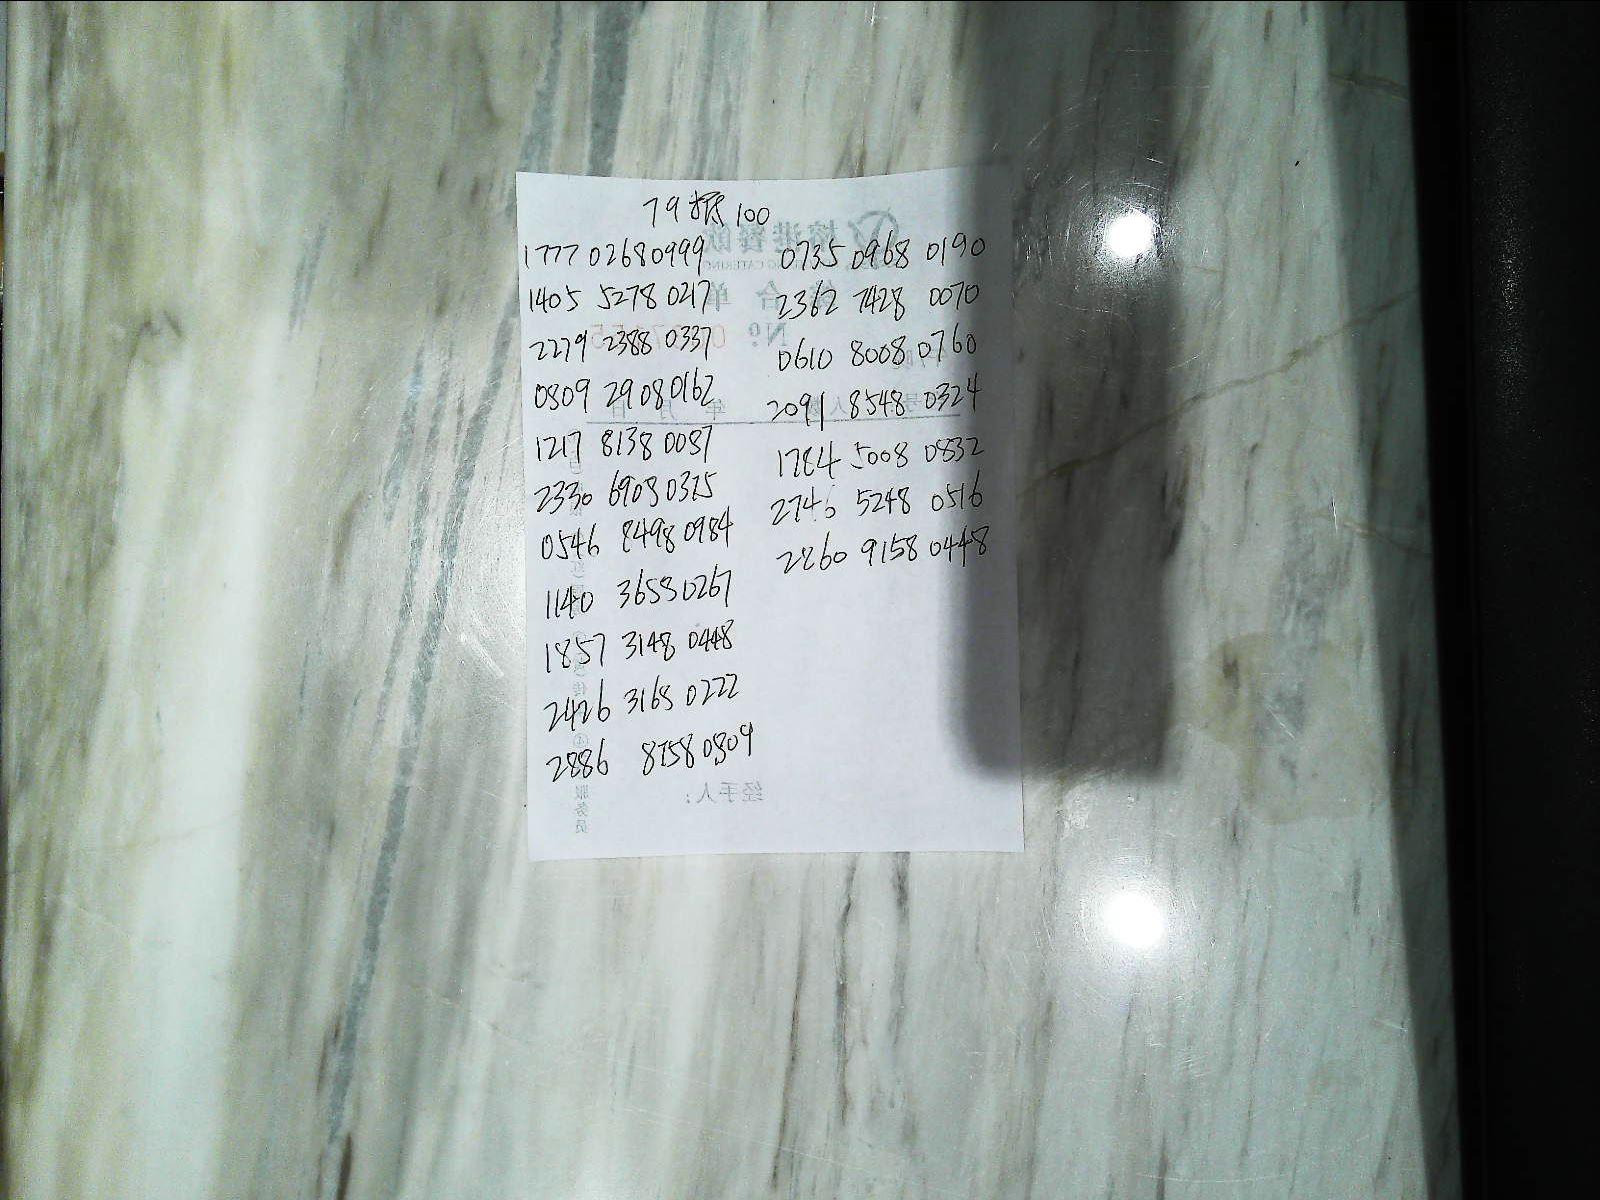 79振100
1777 0268 0999
1405 5278 0217
2279 2388 0337
0809 2908 0162
1217 8138 0087
2330 6908 0375
0546 8498 0984
1140 3658 0267
1857 3148 0448
2426 3168 0222
2886 8758 0809
0735 0968 0190
2362 7428 0070
0610 8008 0760
2091 8548 0324
1784 5008 0832
2746 5248 0516
2860 9158 0448
经手人：